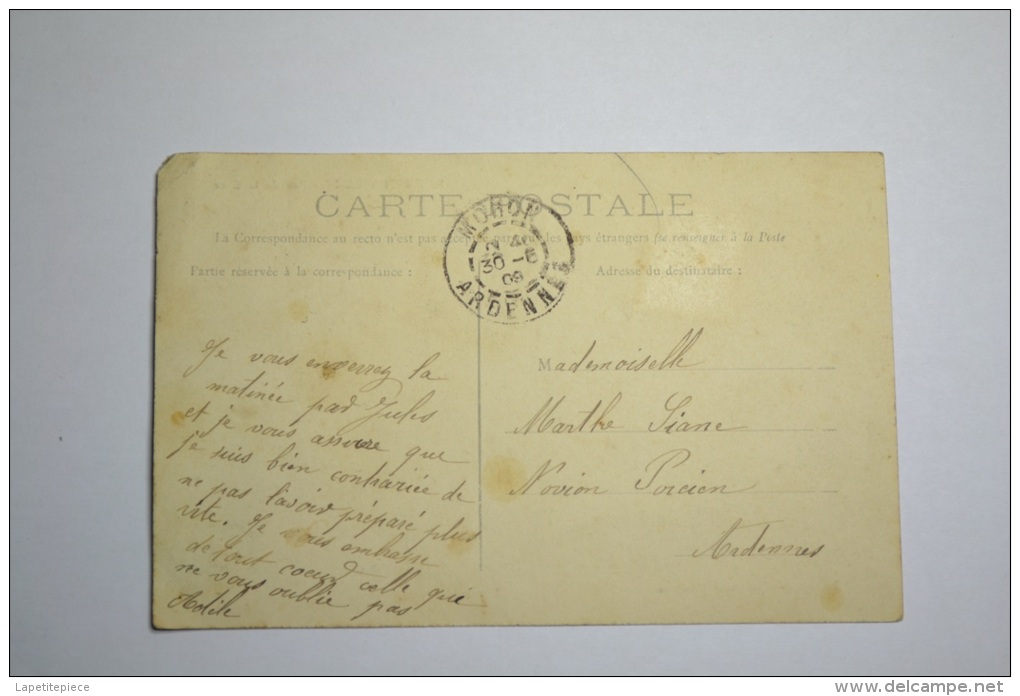 CARTE POSTALE
La Correspondance au recto n'est pas acceptée par tous les pays étrangers (se renseigner à la Poste
Partie réservée à la correspondance :
Adresse du destinataire :
MOHON
30 -8
09
ARDENNES
Je vous enverrez la
matinée par Jules
et je vous assure que
je suis bien contrariée de
ne pas l'avoir préparé plus
vite. Je vous embrasse
de tout coeur celle qui
ne vous oublie pas
Mademoiselle
Marthe Siane
Novion Porcien
Ardennes
Lapetitepiece
www.delcampe.net